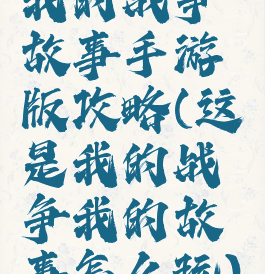 我的战争
故事手游
版攻略(这
是我的战
争我的故
事怎么玩)